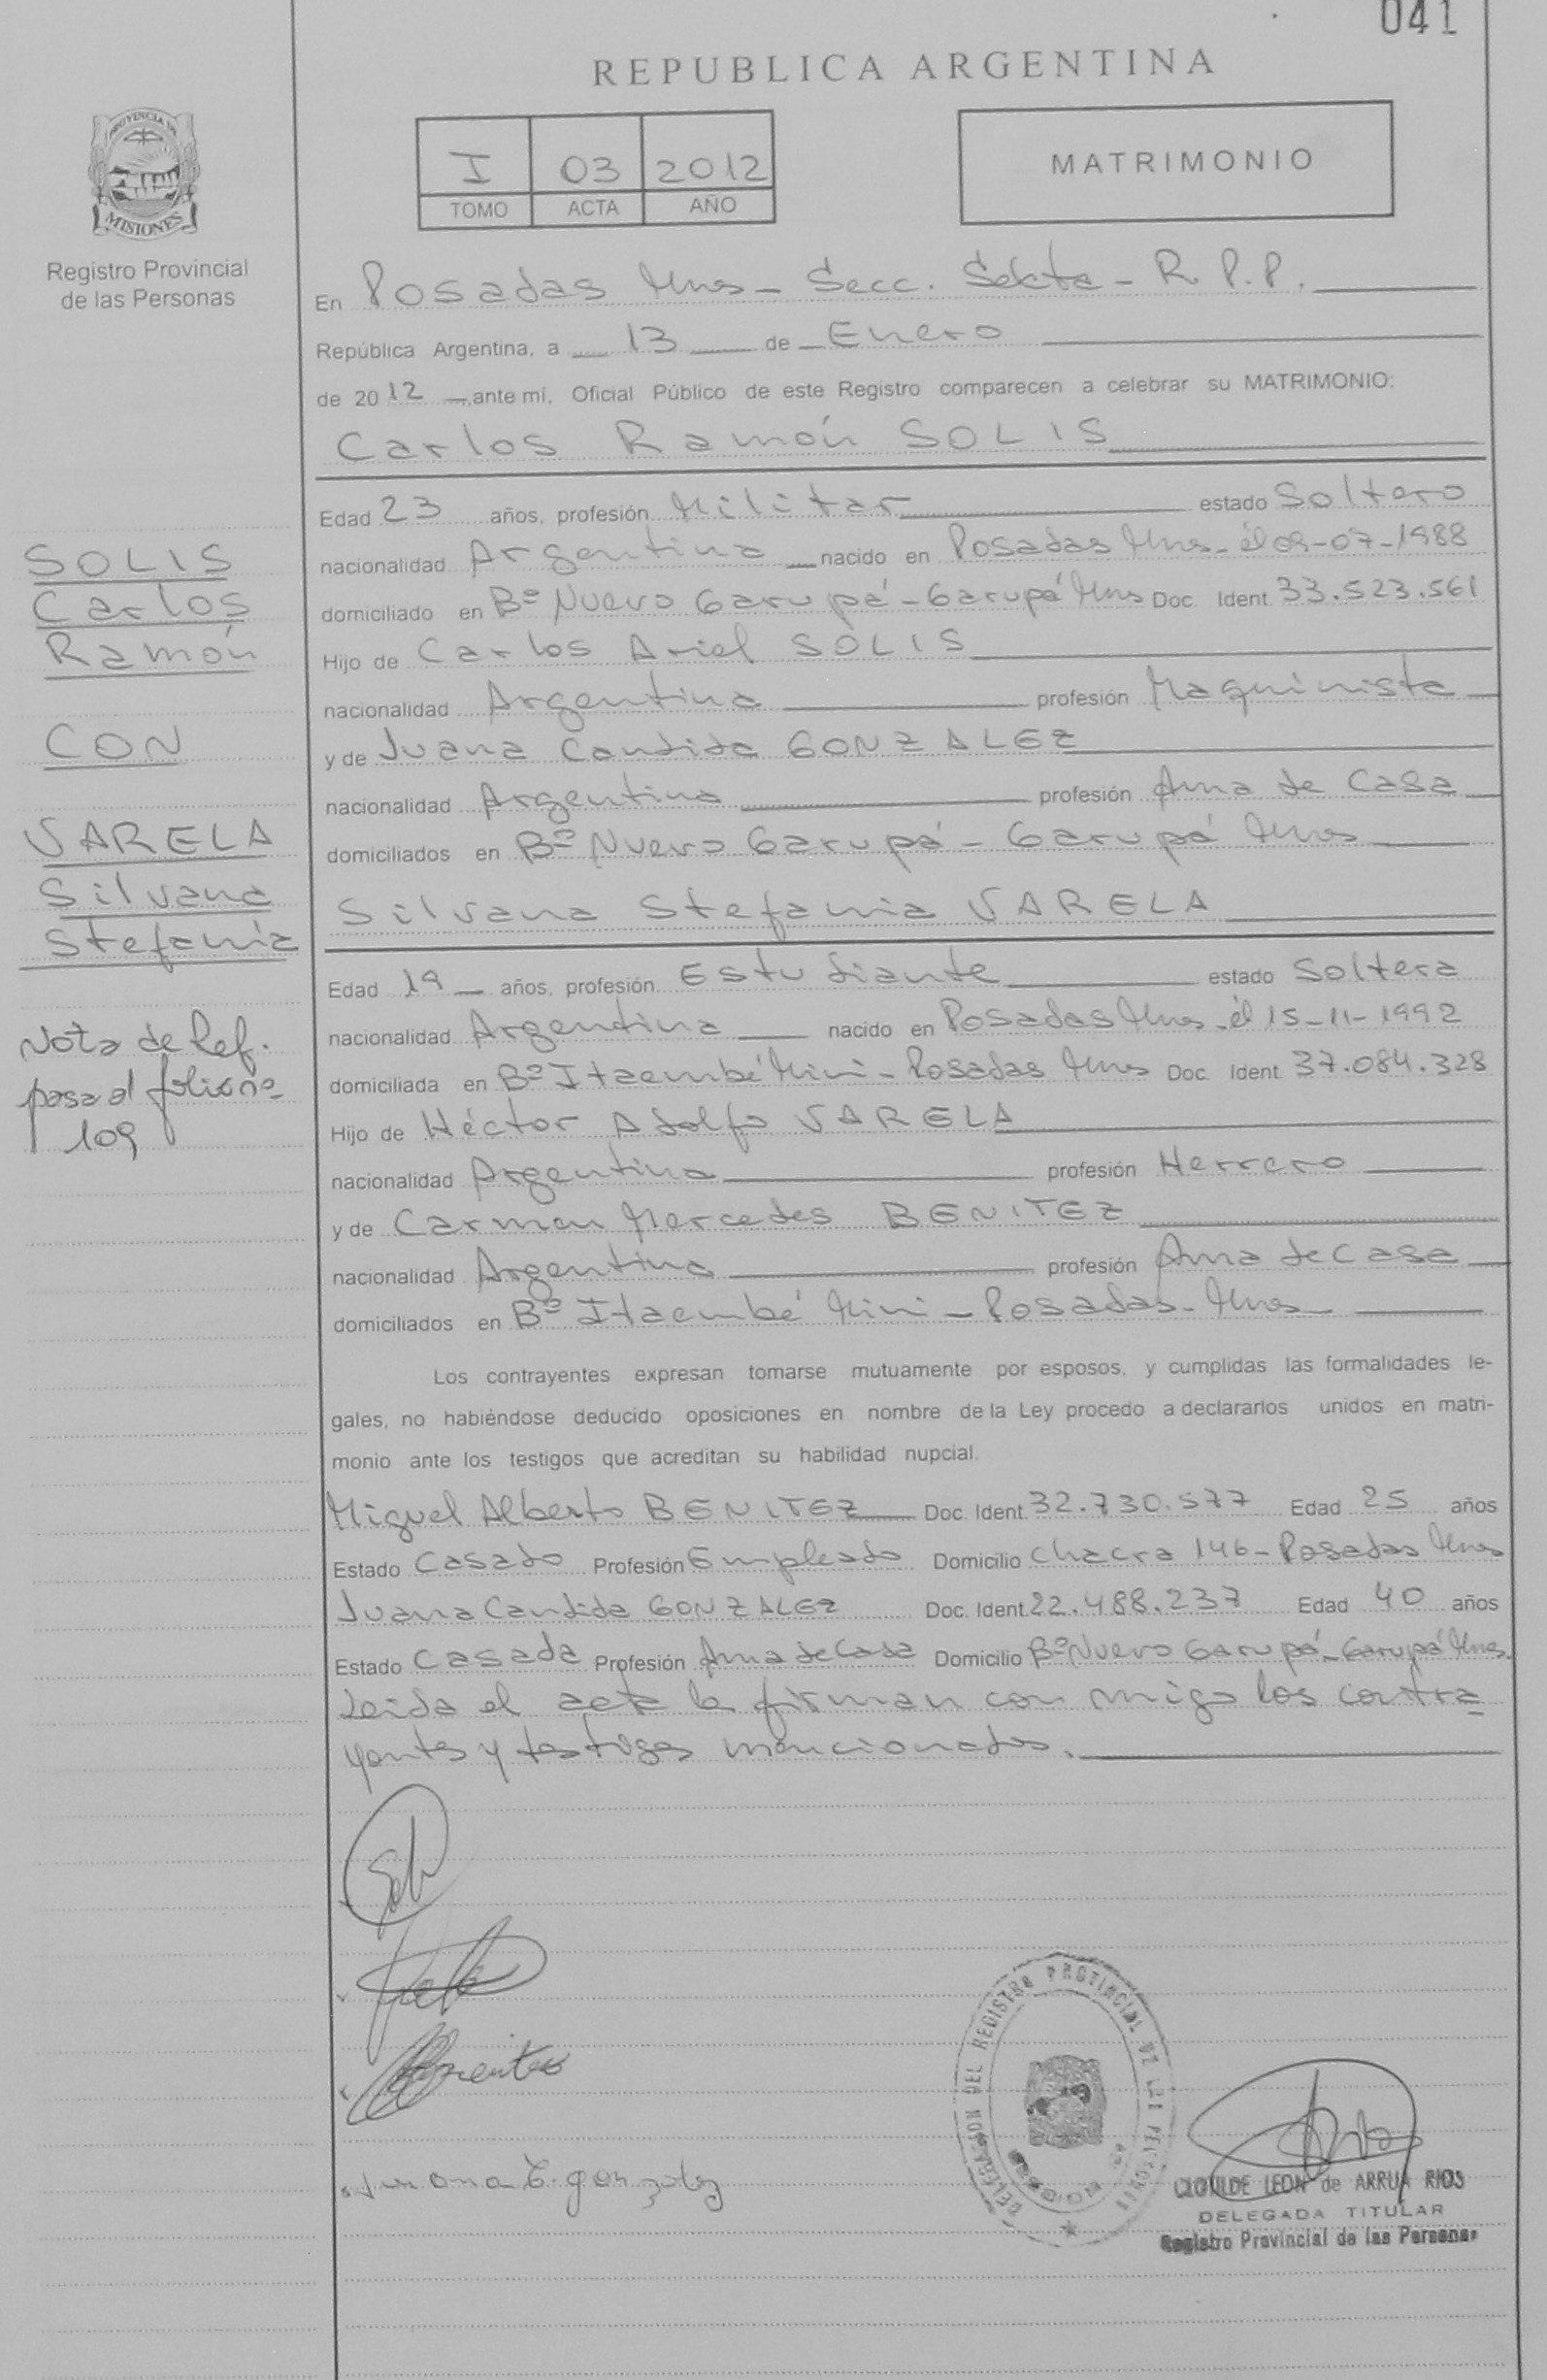 041
REPUBLICA ARGENTINA
PROVINCIA DE
MISIONES
Registro Provincial
de las Personas
I 03 2012
TOMO ACTA AÑO
MATRIMONIO
En Posadas Mnes - Secc. Sexta - R.P.P.
República Argentina, a 13 de Enero
de 2012 ante mí, Oficial Público de este Registro comparecen a celebrar su MATRIMONIO:
Carlos Ramón SOLIS
Edad 23 años, profesión Militar estado Soltero
nacionalidad Argentina nacido en Posadas Mnes - él 09-07-1988
domiciliado en Bº Nuevo Garupá - Garupá Mnes Doc. Ident. 33.523.561
Hijo de Carlos Ariel SOLIS
nacionalidad Argentina profesión Maquinista
y de Juana Candida GONZALEZ
nacionalidad Argentina profesión Ama de Casa
domiciliados en Bº Nuevo Garupá - Garupá Mnes
Silvana Stefania VARELA
Edad 19 años, profesión Estudiante estado Soltera
nacionalidad Argentina nacido en Posadas Mnes - él 15-11-1992
domiciliada en Bº Itaembé Mini - Posadas Mnes Doc. Ident. 37.084.328
Hijo de Héctor Adolfo VARELA
nacionalidad Argentina profesión Herrero
y de Carmen Mercedes BENITEZ
nacionalidad Argentina profesión Ama de Casa
domiciliados en Bº Itaembé Mini - Posadas - Mnes
Los contrayentes expresan tomarse mutuamente por esposos, y cumplidas las formalidades le-
gales, no habiéndose deducido oposiciones en nombre de la Ley procedo a declararlos unidos en matri-
monio ante los testigos que acreditan su habilidad nupcial.
Miguel Alberto BENITEZ Doc. Ident. 32.730.577 Edad 25 años
Estado Casado Profesión Empleado Domicilio Chacra 146 - Posadas Mnes
Juana Candida GONZALEZ Doc. Ident. 22.488.237 Edad 40 años
Estado Casada Profesión Ama de Casa Domicilio Bº Nuevo Garupá - Garupá Mnes.
Leida el acta la firman con migo los contra
yentes y testigos mencionados.
SOLIS
Carlos
Ramón
CON
VARELA
Silvana
Stefania
Nota de Ref.
pasa al folio nº
109
Juana C. gonzalez
DELEGACION DEL REGISTRO PROVINCIAL DE LAS PERSONAS
CLOTILDE LEON de ARRUA RIOS
DELEGADA TITULAR
Registro Provincial de las Personas